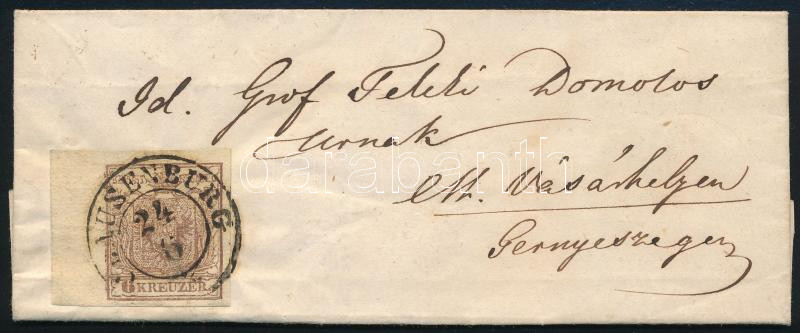 Id. Grof Teleki Domokos
Urnak
M. Vásárhelyen
Gernyeszegen
KLAUSENBURG
24
6
6 KREUZER
darabanth